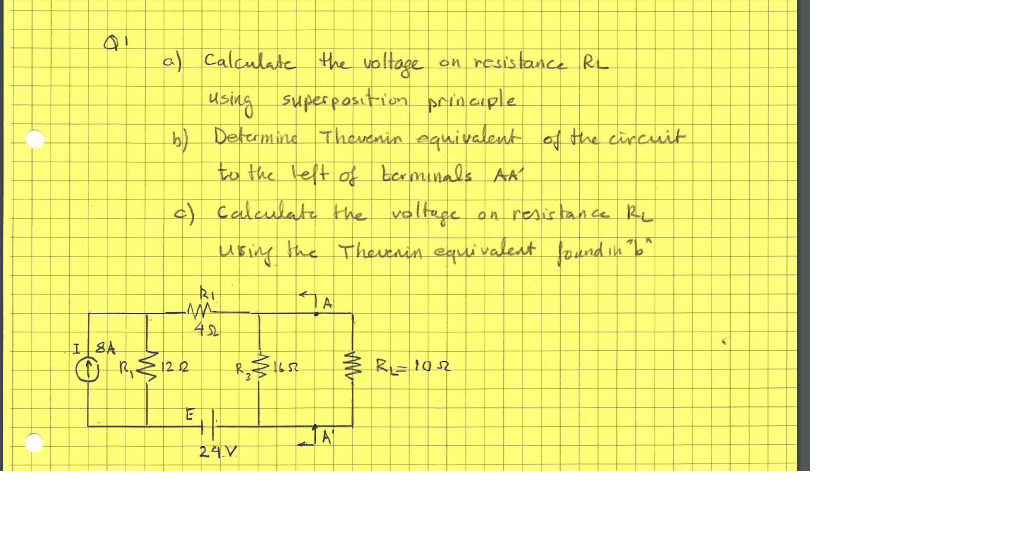 Q1
a) Calculate the voltage on resistance RL
using superposition principle
b) Determine Thevenin equivalent of the circuit
to the left of terminals AA'
c) Calculate the voltage on resistance RL
using the Thevenin equivalent found in "b"
R1
4Ω
A
I 8A
R1 12Ω
R3 16Ω
RL= 10Ω
E
24V
A'